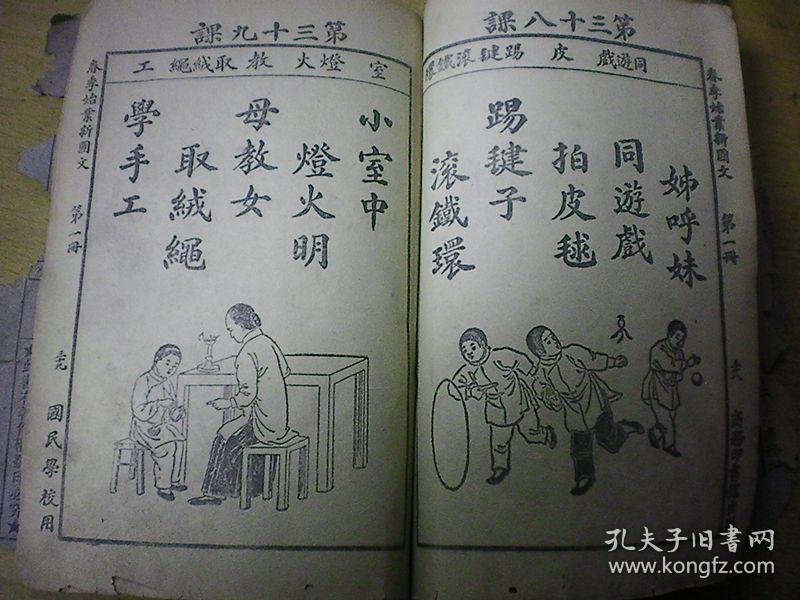 第三十八課
同遊戲 皮 踢毽滾鐵環
姊呼妹
同遊戲
拍皮毬
踢毽子
滾鐵環
春季始業新國文 第一冊
第三十九課
室 燈火 教 取絨繩 工
小室中
燈火明
母教女
取絨繩
學手工
春季始業新國文 第一冊
國民學校用
孔夫子旧书网
www.kongfz.com